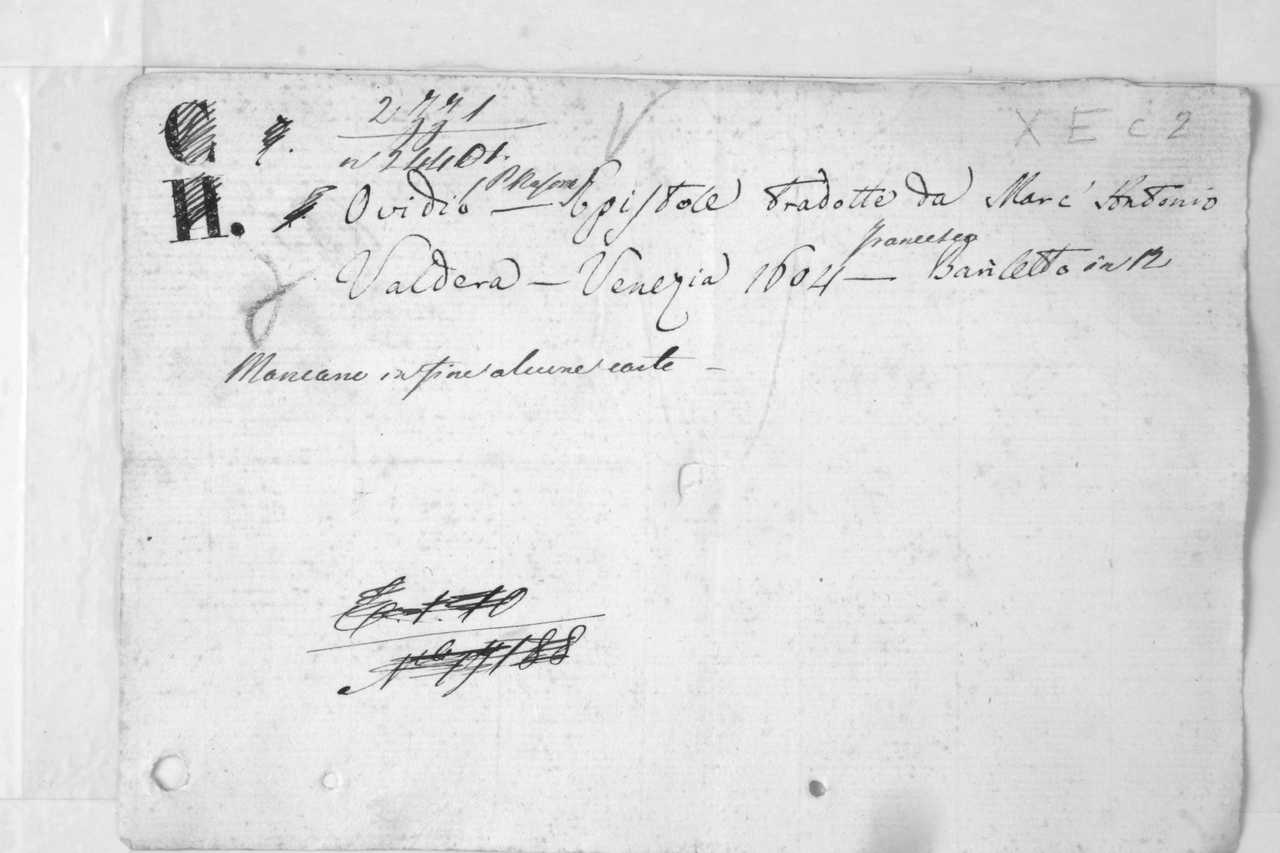 G.
2771
X E C 2
n 24401.
H. Ovidio P. Nasone — Epistole tradotte da Marc' Antonio
Valdera — Venezia 1604 — Francesco Bariletto in 12
Mancano in fine alcune carte —